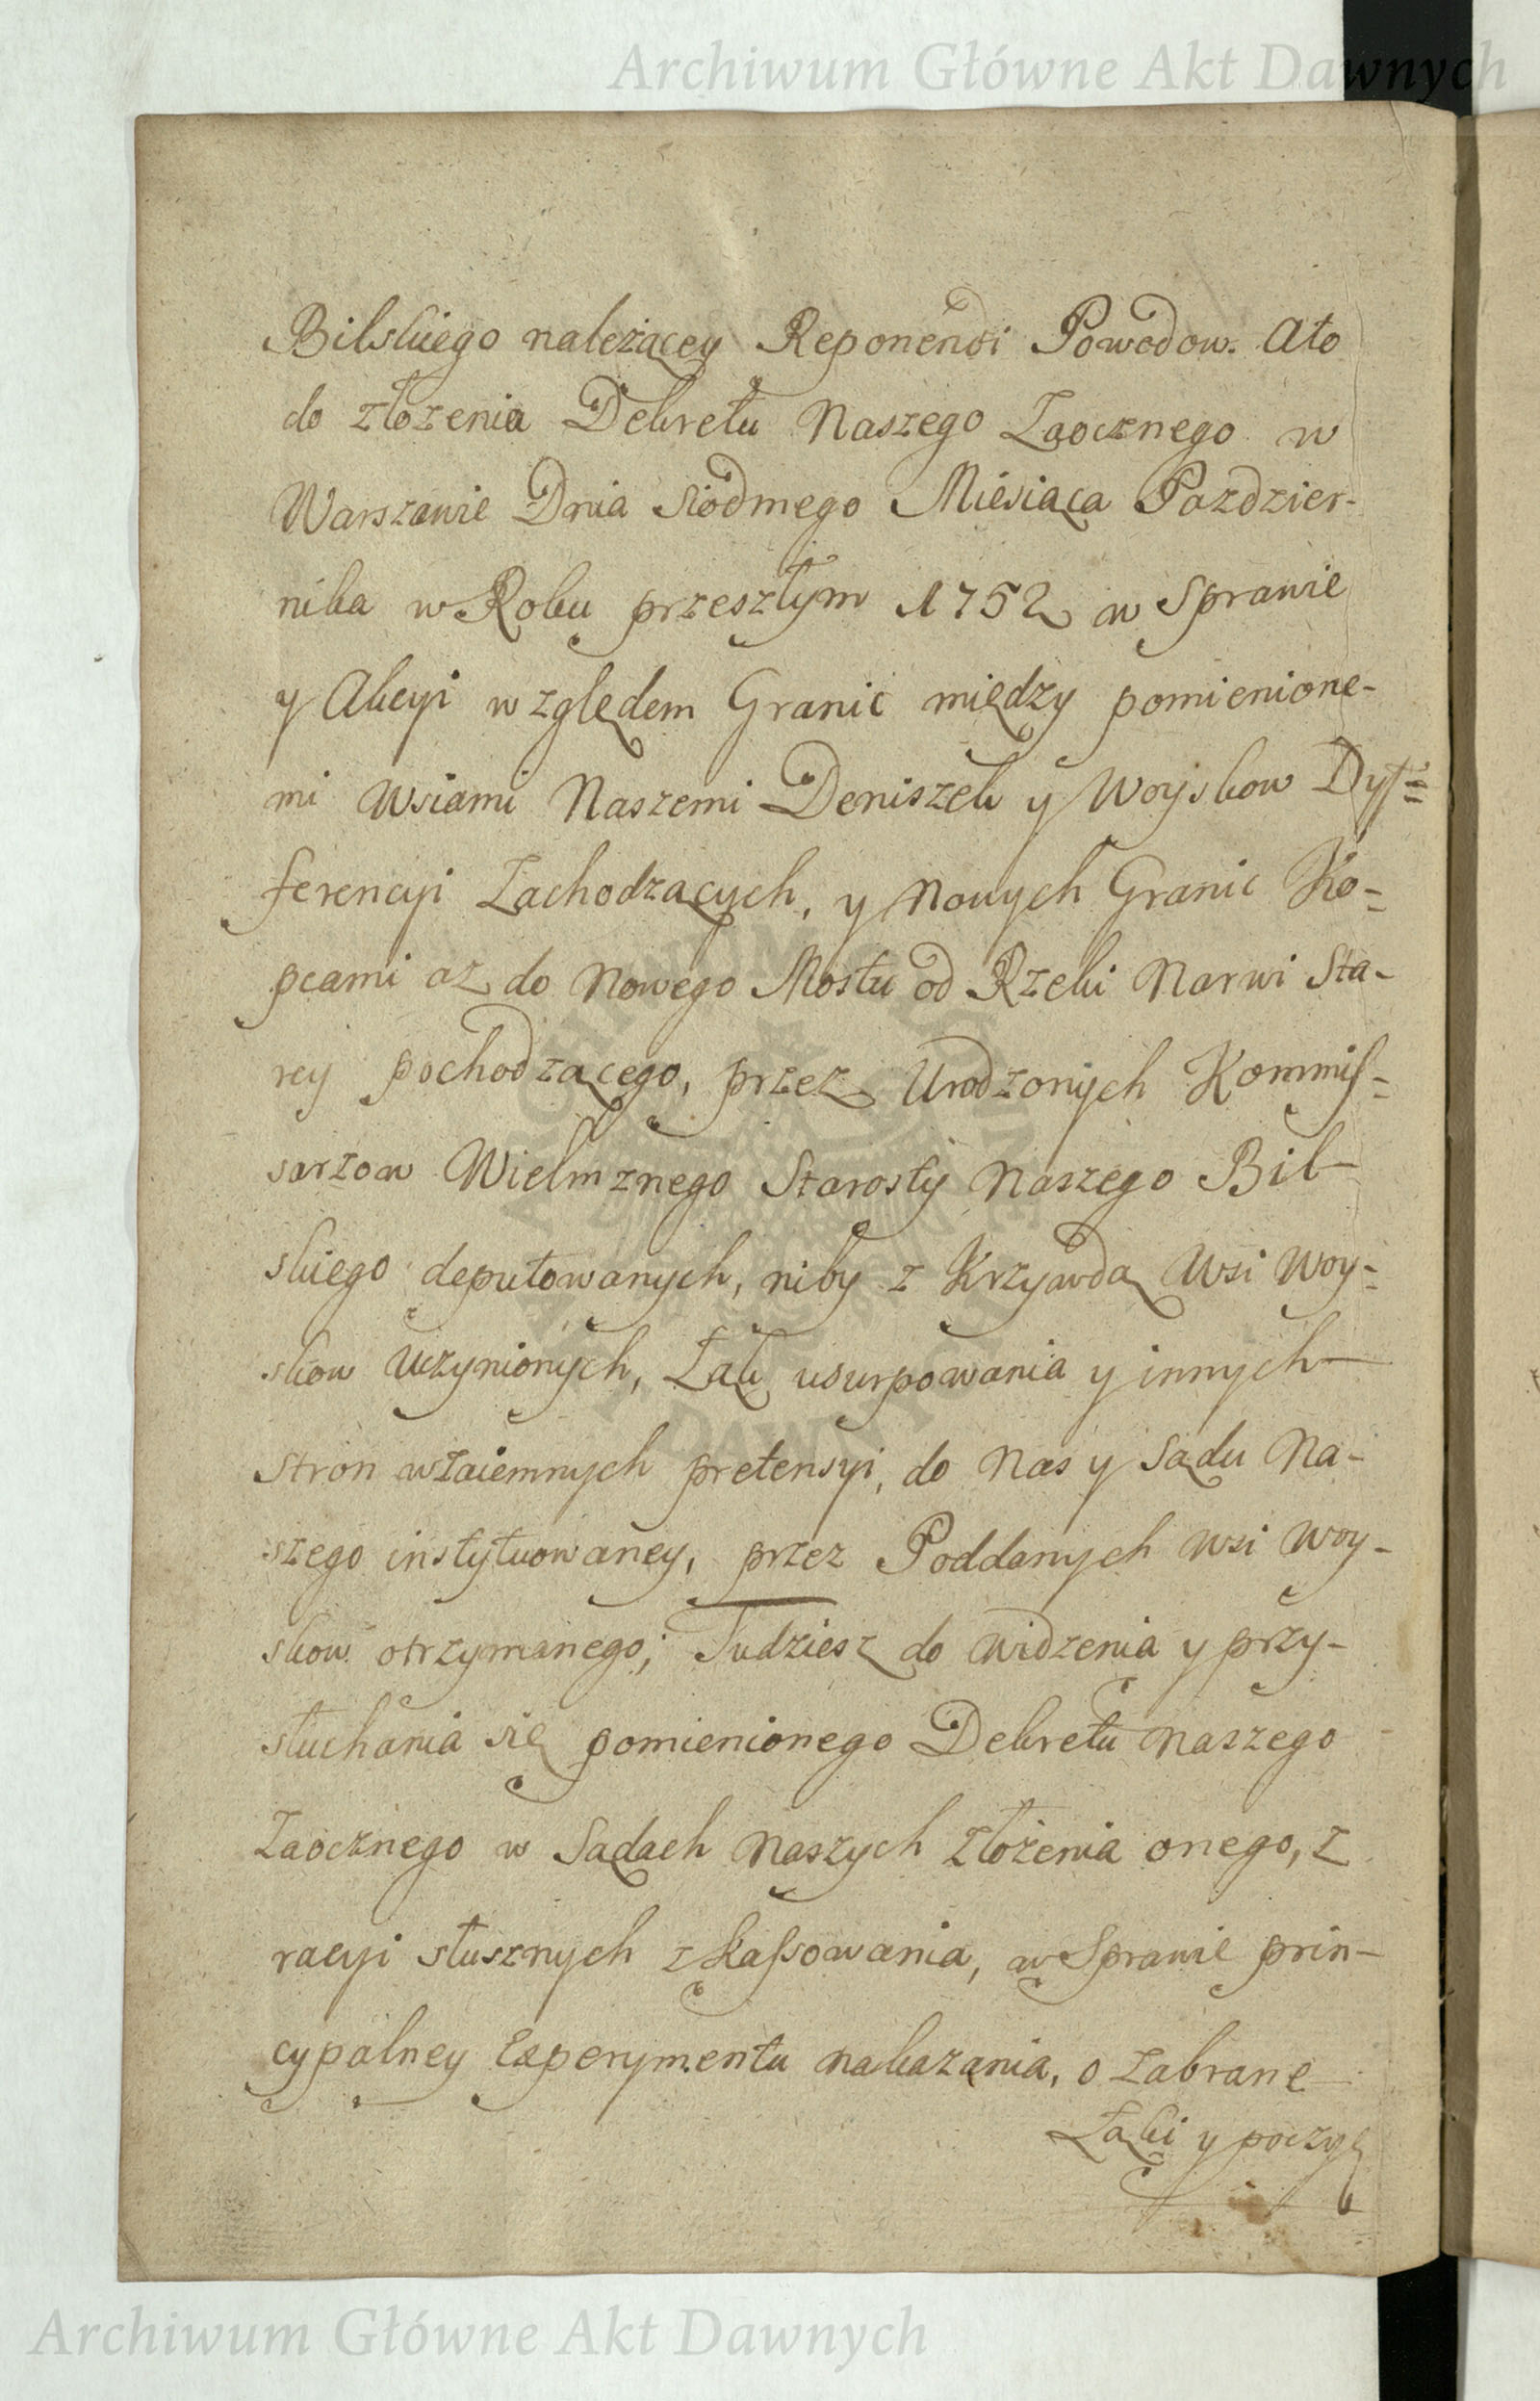 Archiwum Główne Akt Dawnych
Bilskiego należącey Reponendi Powodow. Ato
do złozenia Dekretu Naszego Zaocznego w
Warszawie Dnia Siodmego Miesiąca Pazdzier-
nika w Roku przeszłym 1752 w Sprawie
y Akcyi względem Granic między pomienione-
mi Wsiami Naszemi Deniszek y Woyskow Dyf=
ferencyi Zachodzących, y Nowych Granic Ko=
pcami az do Nowego Mostu od Rzeki Narwi Sta-
rey pochodzącego, przez Urodzonych Kommis=
sarzow Wielmznego Starosty Naszego Bil-
skiego deputowanych, niby z Krzywdą Wsi Woy=
skow Uczynionych, Łąk usurpowania y innych
Stron wzaiemnych pretensyi, do Nas y Sądu Na-
szego instytuowaney, przez Poddanych Wsi Woy-
skow otrzymanego; Tudziesz do widzenia y przy-
słuchania się pomienionego Dekretu Naszego
Zaocznego w Sądach Naszych złożenia onego, z
racyi słusznych zkassowania, w Sprawie prin-
cypalney Experymentu nakazania, o zabrane
Łąki y poczy
Archiwum Główne Akt Dawnych